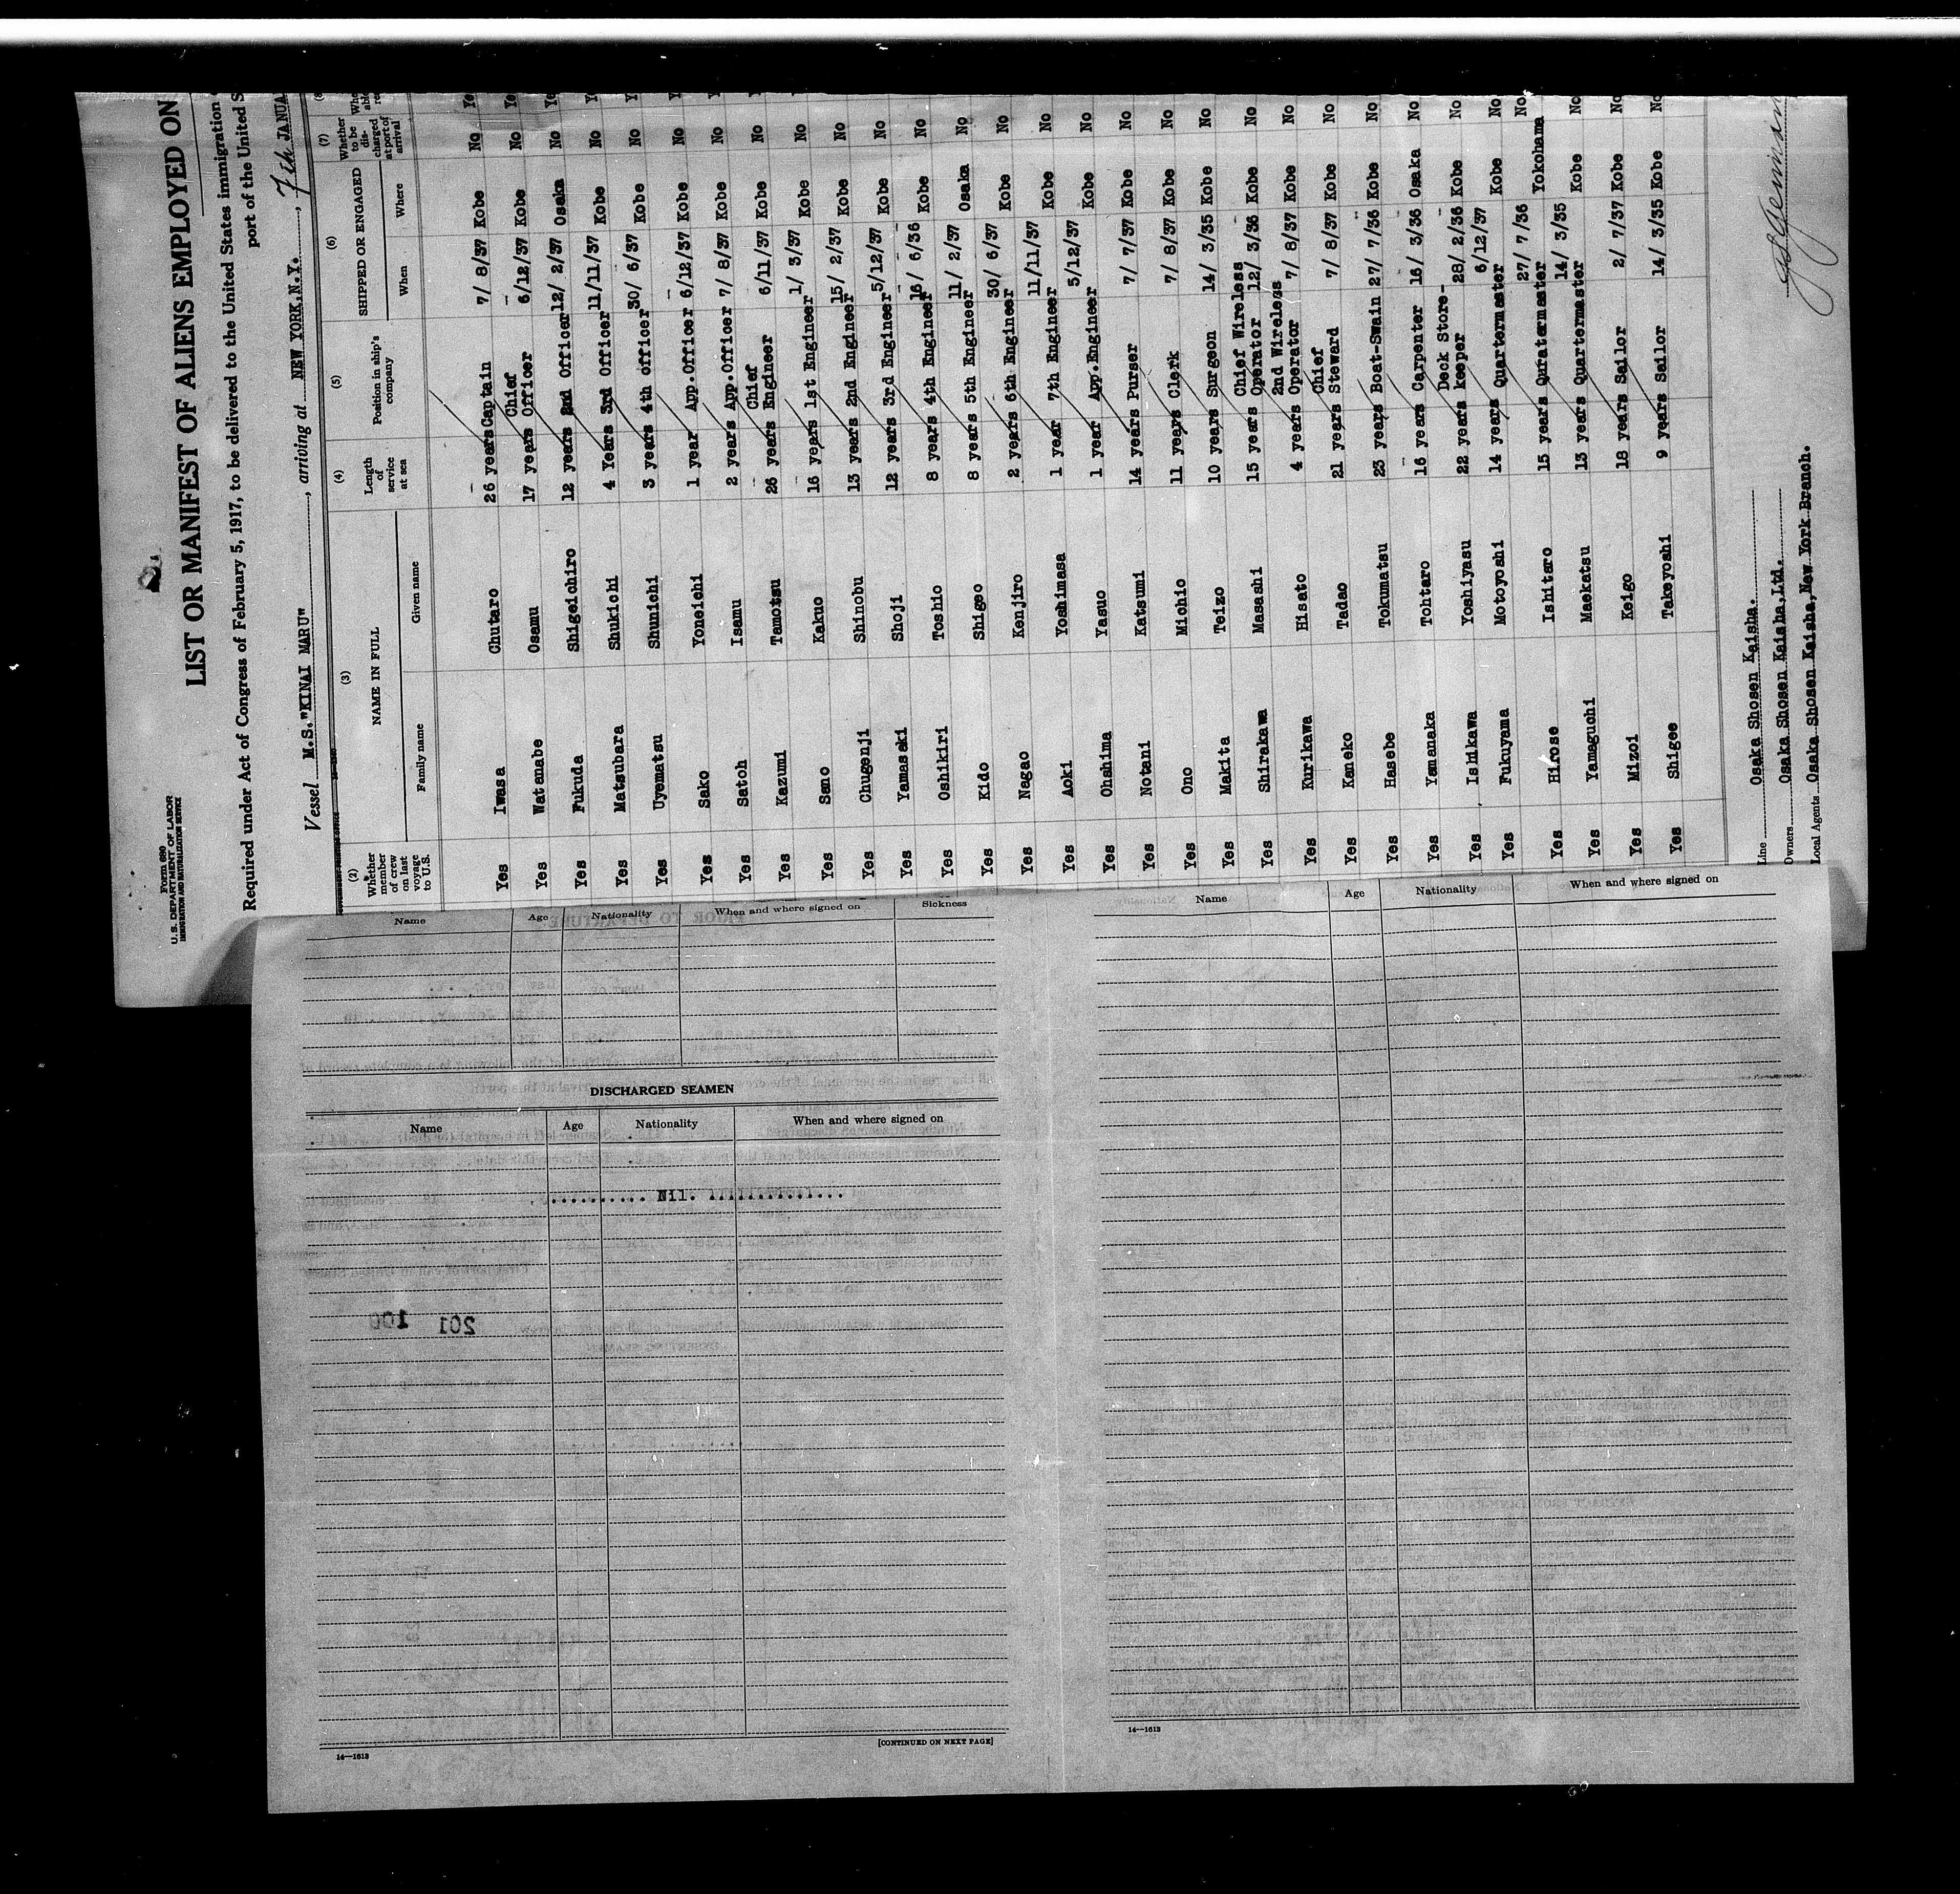 Form 680
U. S. DEPARTMENT OF LABOR
IMMIGRATION AND NATURALIZATION SERVICE
LIST OR MANIFEST OF ALIENS EMPLOYED ON
Required under Act of Congress of February 5, 1917, to be delivered to the United States immigration
port of the United S
Vessel M.S."KINAI MARU", arriving at NEW YORK,N.Y., 7th JANUA
(2) Whether member of crew on last voyage to U.S.
(3) NAME IN FULL
Family name Given name
(4) Length of service at sea
(5) Position in ship's company
(6) SHIPPED OR ENGAGED
When Where
(7) Whether to be discharged at port of arrival
Yes Iwasa Chutaro 26 years Captain 7/ 8/37 Kobe No Ye
Yes Watanabe Osamu 17 years Chief Officer 6/12/37 Kobe No Ye
Yes Fukuda Shigeichiro 12 years 2nd Officer 12/ 2/37 Osaka No Ye
Yes Matsubara Shukichi 4 Years 3rd Officer 11/11/37 Kobe No Ye
Yes Uyematsu Shunichi 3 years 4th officer 30/ 6/37 Kobe No Ye
Yes Sako Yoneichi 1 year App.Officer 6/12/37 Kobe No Ye
Yes Satoh Isamu 2 years App.Officer 7/ 8/37 Kobe No Y
Yes Kazumi Tamotsu 26 years Chief Engineer 6/11/37 Kobe No Y
Yes Sano Kakuo 16 years 1st Engineer 1/ 3/37 Kobe No
Yes Chugenji Shinobu 13 years 2nd Engineer 15/ 2/37 Kobe No
Yes Yamaseki Shoji 12 years 3rd Engineer 5/12/37 Kobe No
Yes Oshikiri Toshio 8 years 4th Engineer 16/ 6/36 Kobe No
Yes Kido Shigeo 8 years 5th Engineer 11/ 2/37 Osaka No
Yes Nagao Kenjiro 2 years 6th Engineer 30/ 6/37 Kobe No
Yes Aoki Yoshimasa 1 year 7th Engineer 11/11/37 Kobe No
Yes Ohashima Yasuo 1 year App.Engineer 5/12/37 Kobe No
Yes Notani Katsumi 14 years Purser 7/ 7/37 Kobe No
Yes Ono Michio 11 years Clerk 7/ 8/37 Kobe No
Yes Makita Teizo 10 years Surgeon 14/ 3/35 Kobe No
Yes Shirakawa Masashi 15 years Chief Wireless Operator 12/ 3/36 Kobe No
Yes Kurikawa Hisato 4 years 2nd Wireless Operator 7/ 8/37 Kobe No
Yes Kaneko Tadao 21 years Chief Steward 7/ 8/37 Kobe No
Yes Hasebe Tokumatsu 23 years Boat-Swain 27/ 7/36 Kobe No
Yes Yamanaka Tohtaro 16 years Carpenter 16/ 3/36 Osaka No
Yes Ishikawa Yoshiyasu 22 years Deck Store-keeper 28/ 2/36 Kobe No
Yes Fukuyama Motoyoshi 14 years Quartermaster 6/12/37 Kobe No
Yes Hirose Ishitaro 15 years Quratermaster 27/ 7/36 Yokohama No
Yes Yamaguchi Maekatsu 13 years Quartermaster 14/ 3/35 Kobe No
Yes Mizoi Keigo 18 years Sailor 2/ 7/37 Kobe No
Yes Shigee Takeyoshi 9 years Sailor 14/ 3/35 Kobe No
Line Osaka Shosen Kaisha.
Owners Osaka Shosen Kaisha,Ltd.
Local Agents Osaka Shosen Kaisha,New York Branch.
Name Age Nationality When and where signed on Sickness
DISCHARGED SEAMEN
Name Age Nationality When and where signed on
.......... Nil. ..............
201
14—1613
[CONTINUED ON NEXT PAGE]
Name Age Nationality When and where signed on
14—1613